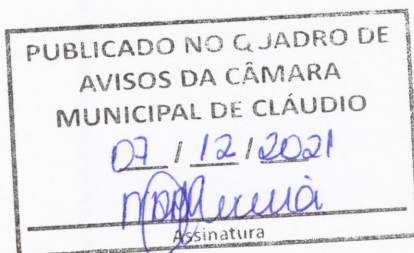 PUBLICADO NO QUADRO DE
AVISOS DA CÂMARA
MUNICIPAL DE CLÁUDIO
07 / 12 / 2021
Assinatura